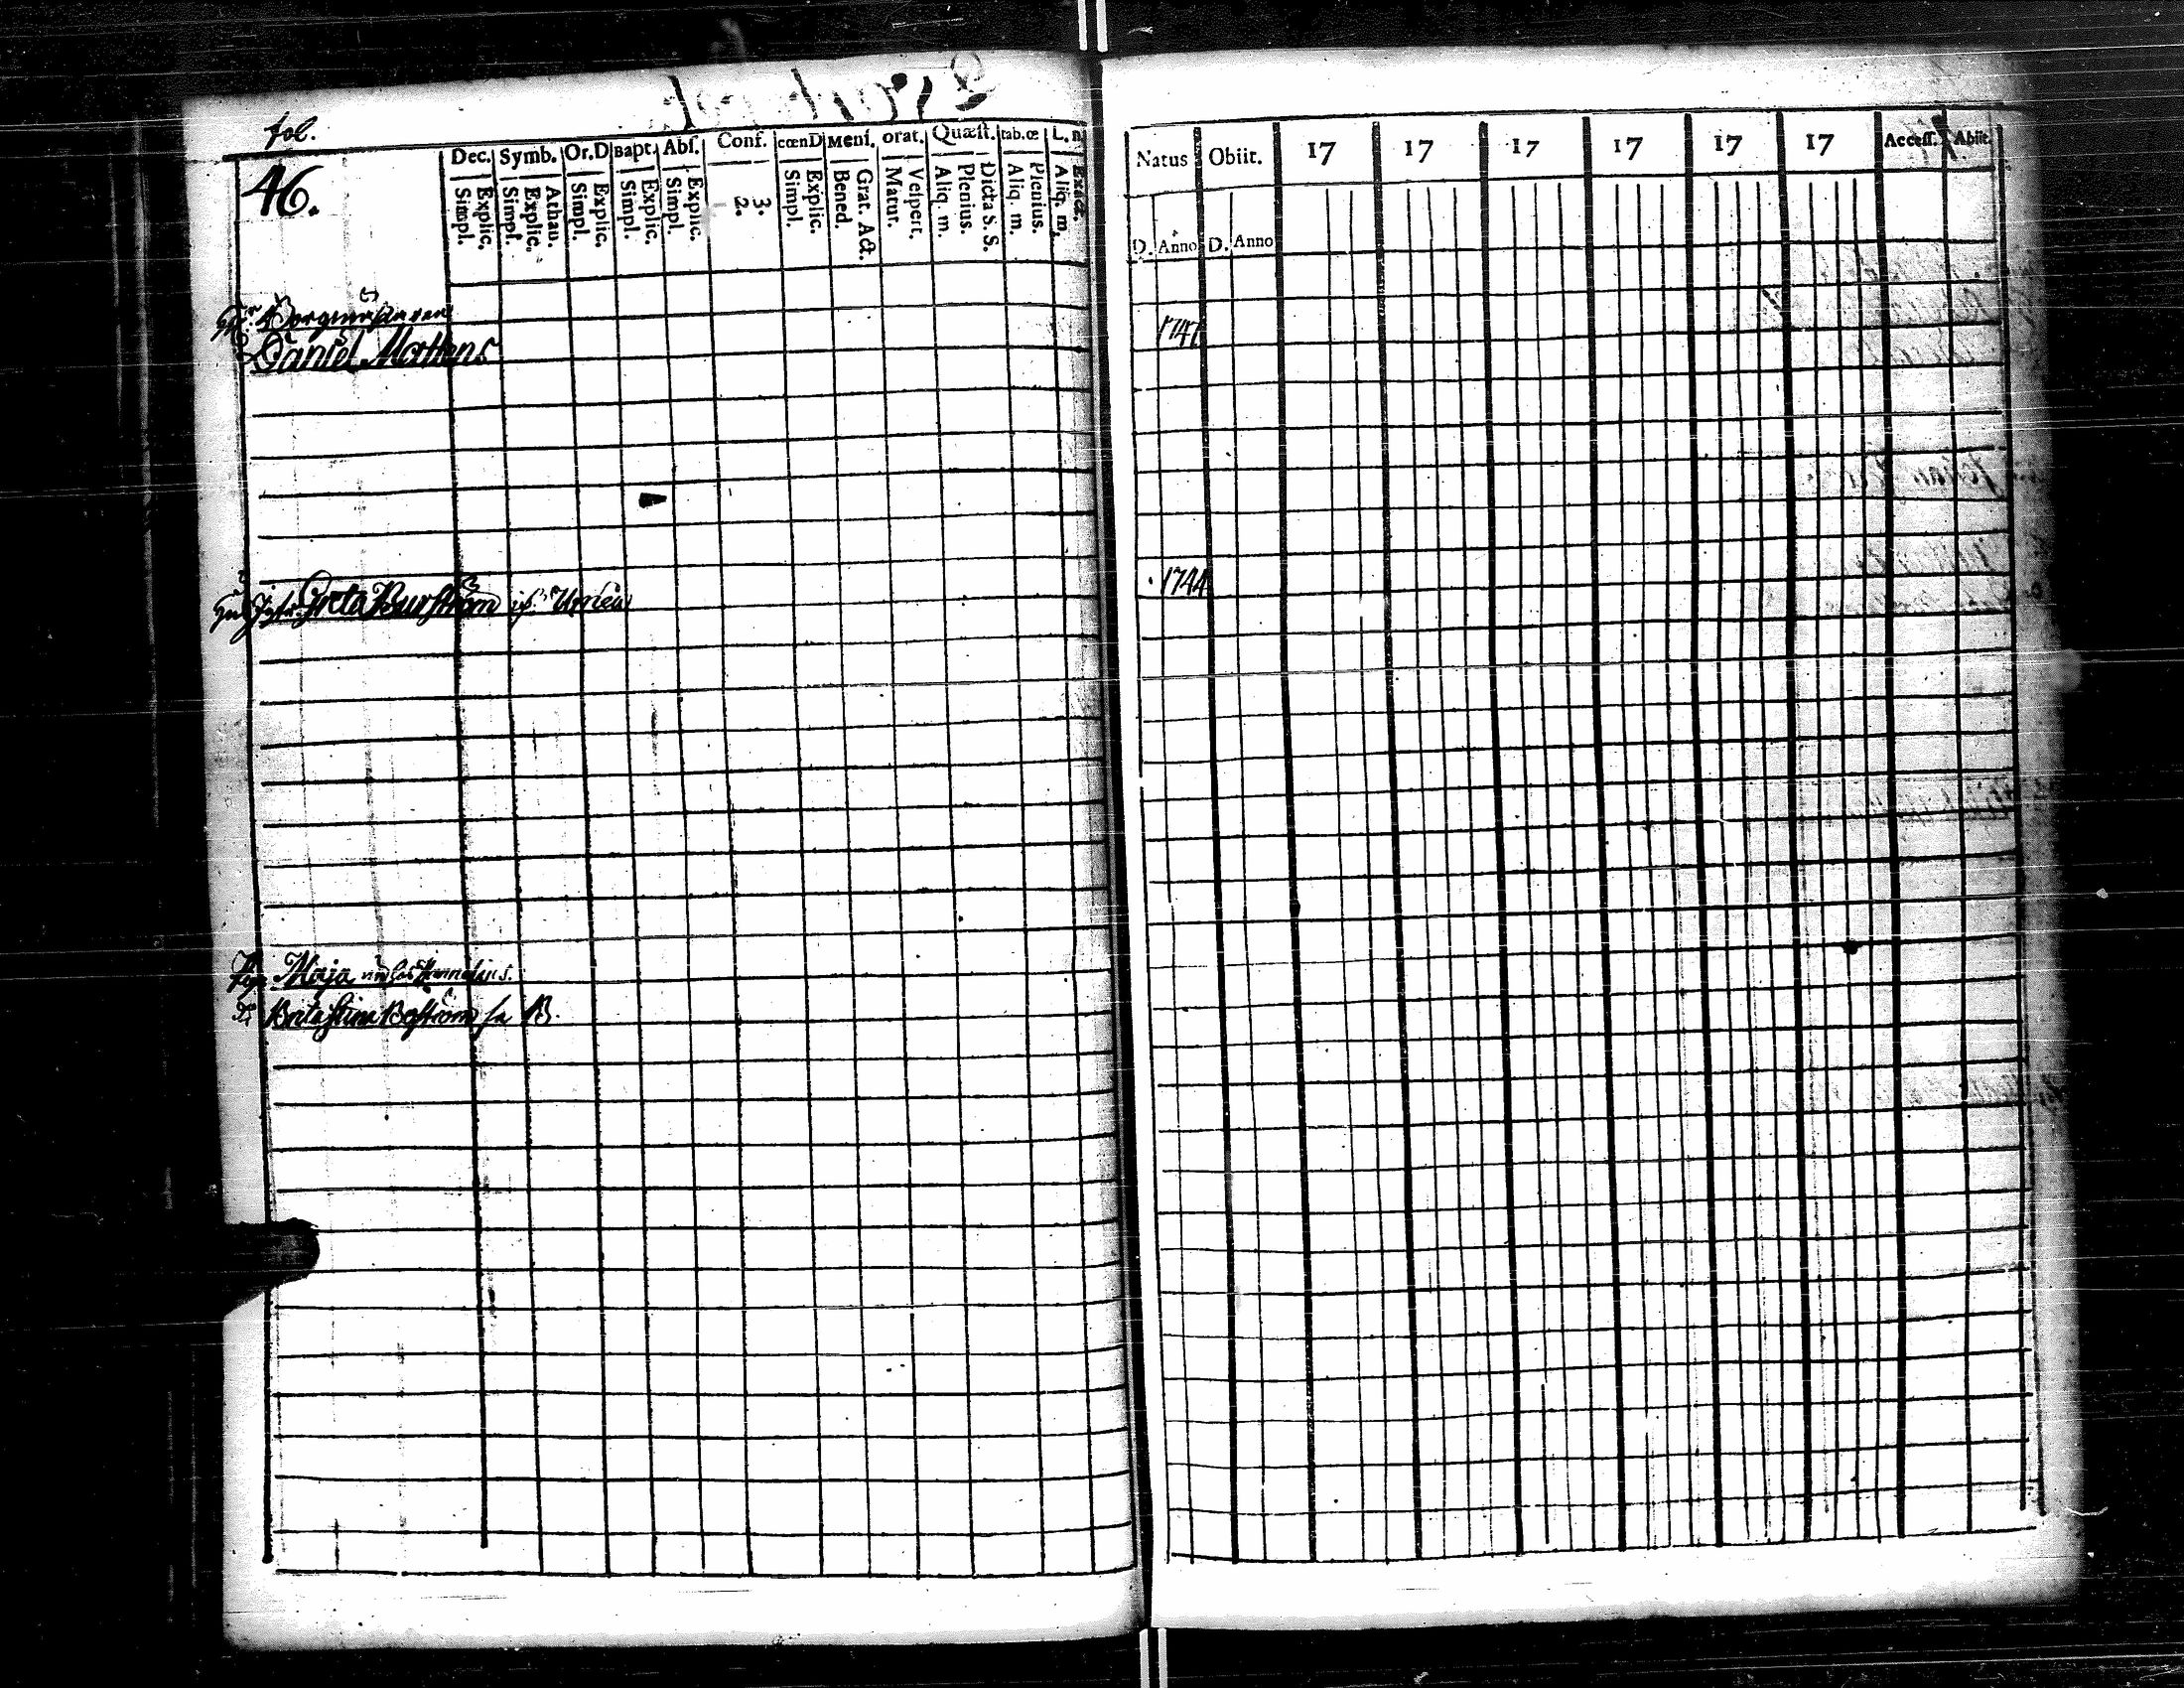 fol.
46.
Dec. Symb. Or.D Bapt. Abs. Conf. cœnD Mens. orat. Quæst. tab.œ L.n
Simpl. Explic. Simpl. Explic. Athan. Simpl. Explic. Simpl. Explic. Simpl. Explic. 2. 3. Simpl. Explic. Bened. Grat. Act. Matut. Vespert. Aliq. m. Plenius. Dicta S. S. Aliq. m. Plenius. Aliq. m. Exact.
Natus Obiit. 17 17 17 17 17 17 Access. Abiit
D. Anno D. Anno
Hr Borgmästaren
Daniel Mathens 1741
Greta Burström Umeå 1744
Pig. Maja
Brita Stina Boström fr B